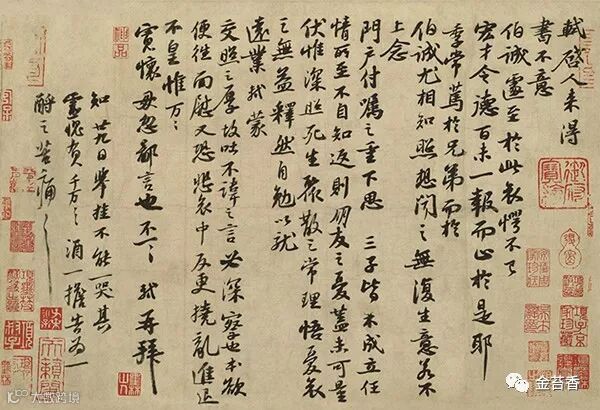 軾啓人来得
書不意
伯誠遽至於此哀愕不已
宏才令德百未一報而止於是耶
季常篤於兄弟而於
伯誠尤相知照想聞之無復生意若不
上念
門户付囑之重下思 三子皆未成立任
情所至不自知返則朋友之憂蓋未可量
伏惟深照死生聚散之常理悟憂哀
之無益釋然自勉以就
遠業軾蒙
交照之厚故吐不諱之言必深察也本欲
便往面慰又恐悲哀中反更撓亂進退
不皇惟万万
寬懷毋忽鄙言也不一一 軾再拜
知廿九日舉掛不能一哭其
靈愧負千万千万酒一擔告為一
酹之苦痛苦痛
大数跨境
金苔香